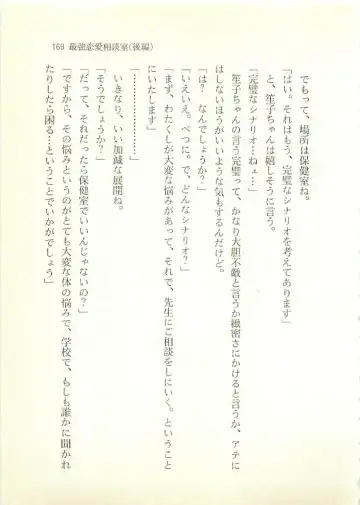 169 最強恋愛相談室(後編)
でもって、場所は保健室ね。
「はい。それはもう、完璧なシナリオを考えてあります」
と、笙子ちゃんは嬉しそうに言う。
「完璧なシナリオ…ねェ…」
笙子ちゃんの言う完璧って、かなり大胆不敵と言うか緻密さにかけると言うか、アテに
はしないほうがいいような気もするんだけど。
「は？　なんでしょうか？」
「いえいえ。べつに。で、どんなシナリオ？」
「まず、わたくしが大変な悩みがあって、それで、先生にご相談をしにいく。ということ
にいたします」
「…………………」
いきなり、いい加減な展開ね。
「そうでしょうか？」
「だって、それだったら保健室でいいんじゃないの？」
「ですから、その悩みというのがとても大変な体の悩みで、学校で、もしも誰かに聞かれ
たりしたら困る…ということでいかがでしょう」